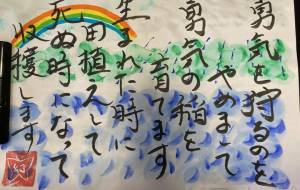 勇気を狩るのを
やめて
勇気の稲を
育てます
生まれた時に
田植えして
死ぬ時になって
収穫します